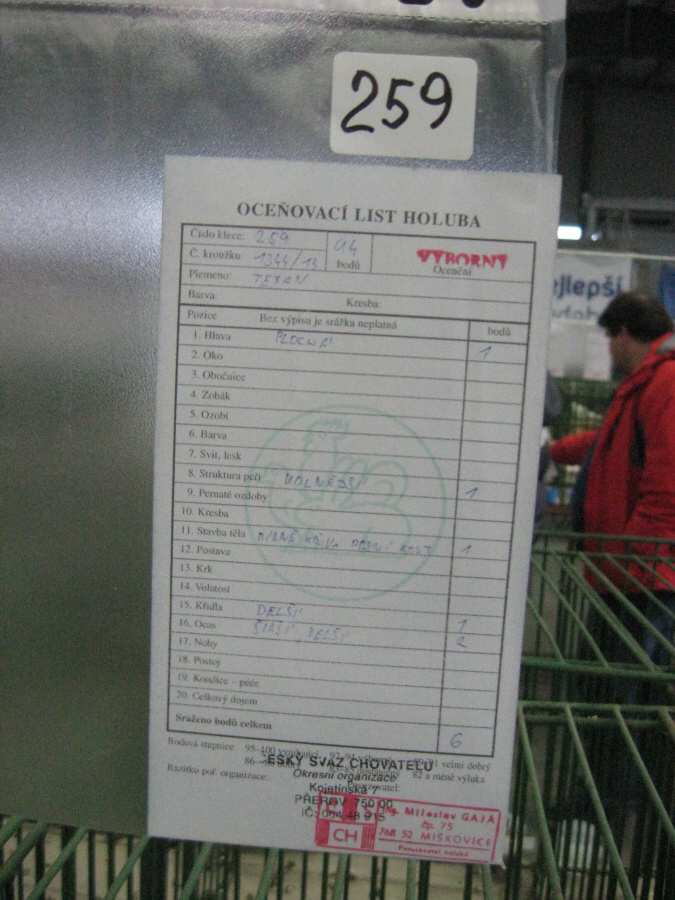 259
OCEŇOVACÍ LIST HOLUBA
Číslo klece: 259
Č. kroužku 1344/13
94
bodů
VÝBORNÝ
Ocenění
Plemeno:
Barva: Kresba:
Pozice Bez výpisu je srážka neplatná bodů
1. Hlava PLOCHÁ 1
2. Oko
3. Obočnice
4. Zobák
5. Ozobí
6. Barva
7. Svit, lesk
8. Struktura peří VOLNĚJŠÍ
9. Pernaté ozdoby 1
10. Kresba
11. Stavba těla KOST 1
12. Postava
13. Krk
14. Volatost
15. Křídla DELŠÍ 1
16. Ocas ŠIRŠÍ, DELŠÍ 2
17. Nohy
18. Postoj
19. Kondice – péče
20. Celkový dojem
Sraženo bodů celkem 6
Bodová stupnice 95-100 vynikající velmi dobrý
82 a méně výluka
Razítko poř. organizace:
ESKÝ SVAZ CHOVATELŮ
Okresní organizace
Kojetínská 7
PŘEROV 750 00
CH
Ing. Miloslav GAJA
čp. 75
768 52 MÍŠKOVICE
Posuzovatel holubů
ejlepší